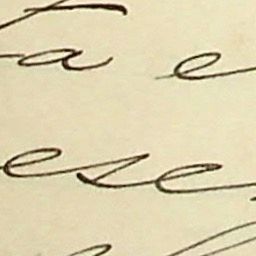 ta e
ese